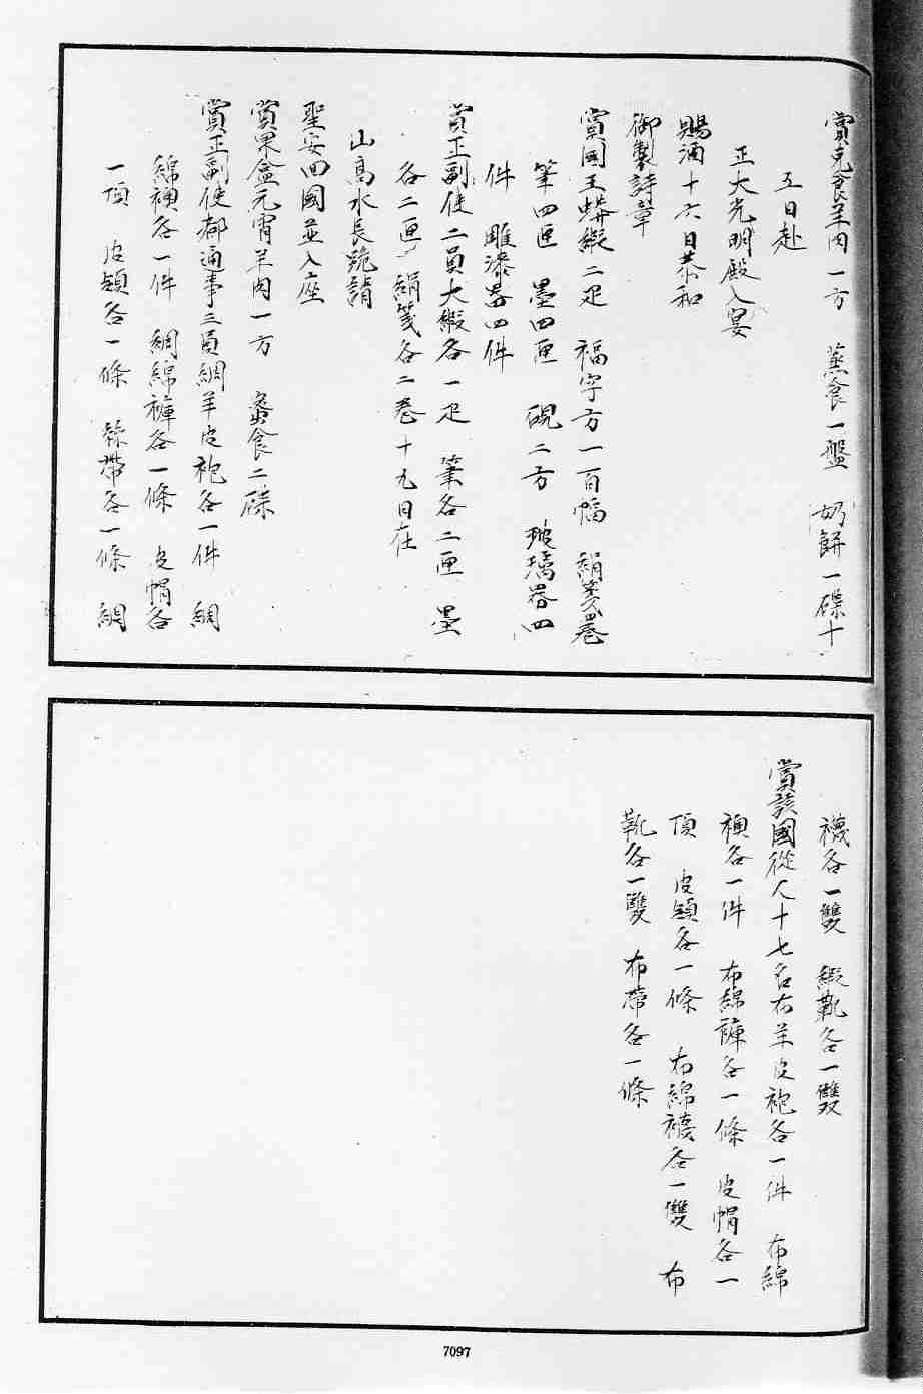 賞克食羊肉一方　蒸食一盤　奶餅一碟十
五日赴
正大光明殿入宴
賜酒十六日恭和
御製詩章
賞國王蟒緞二疋　福字方一百幅　絹箋四卷
筆四匣　墨四匣　硯二方　玻璃器四
件　雕漆器四件
賞正副使二員大緞各一疋　筆各二匣　墨
各二匣　絹箋各二卷十九日在
山高水長跪請
聖安回國並入座
賞果盒元宵羊肉一方　餑食二碟
賞正副使都通事三員綢羊皮袍各一件　綢
綿襖各一件　綢綿褲各一條　皮帽各
一頂　皮領各一條　絲帶各一條　綢
襪各一雙　緞靴各一雙
賞該國從人十七名布羊皮袍各一件　布綿
襖各一件　布綿褲各一條　皮帽各一
頂　皮領各一條　布綿襪各一雙　布
靴各一雙　布帶各一條
7097